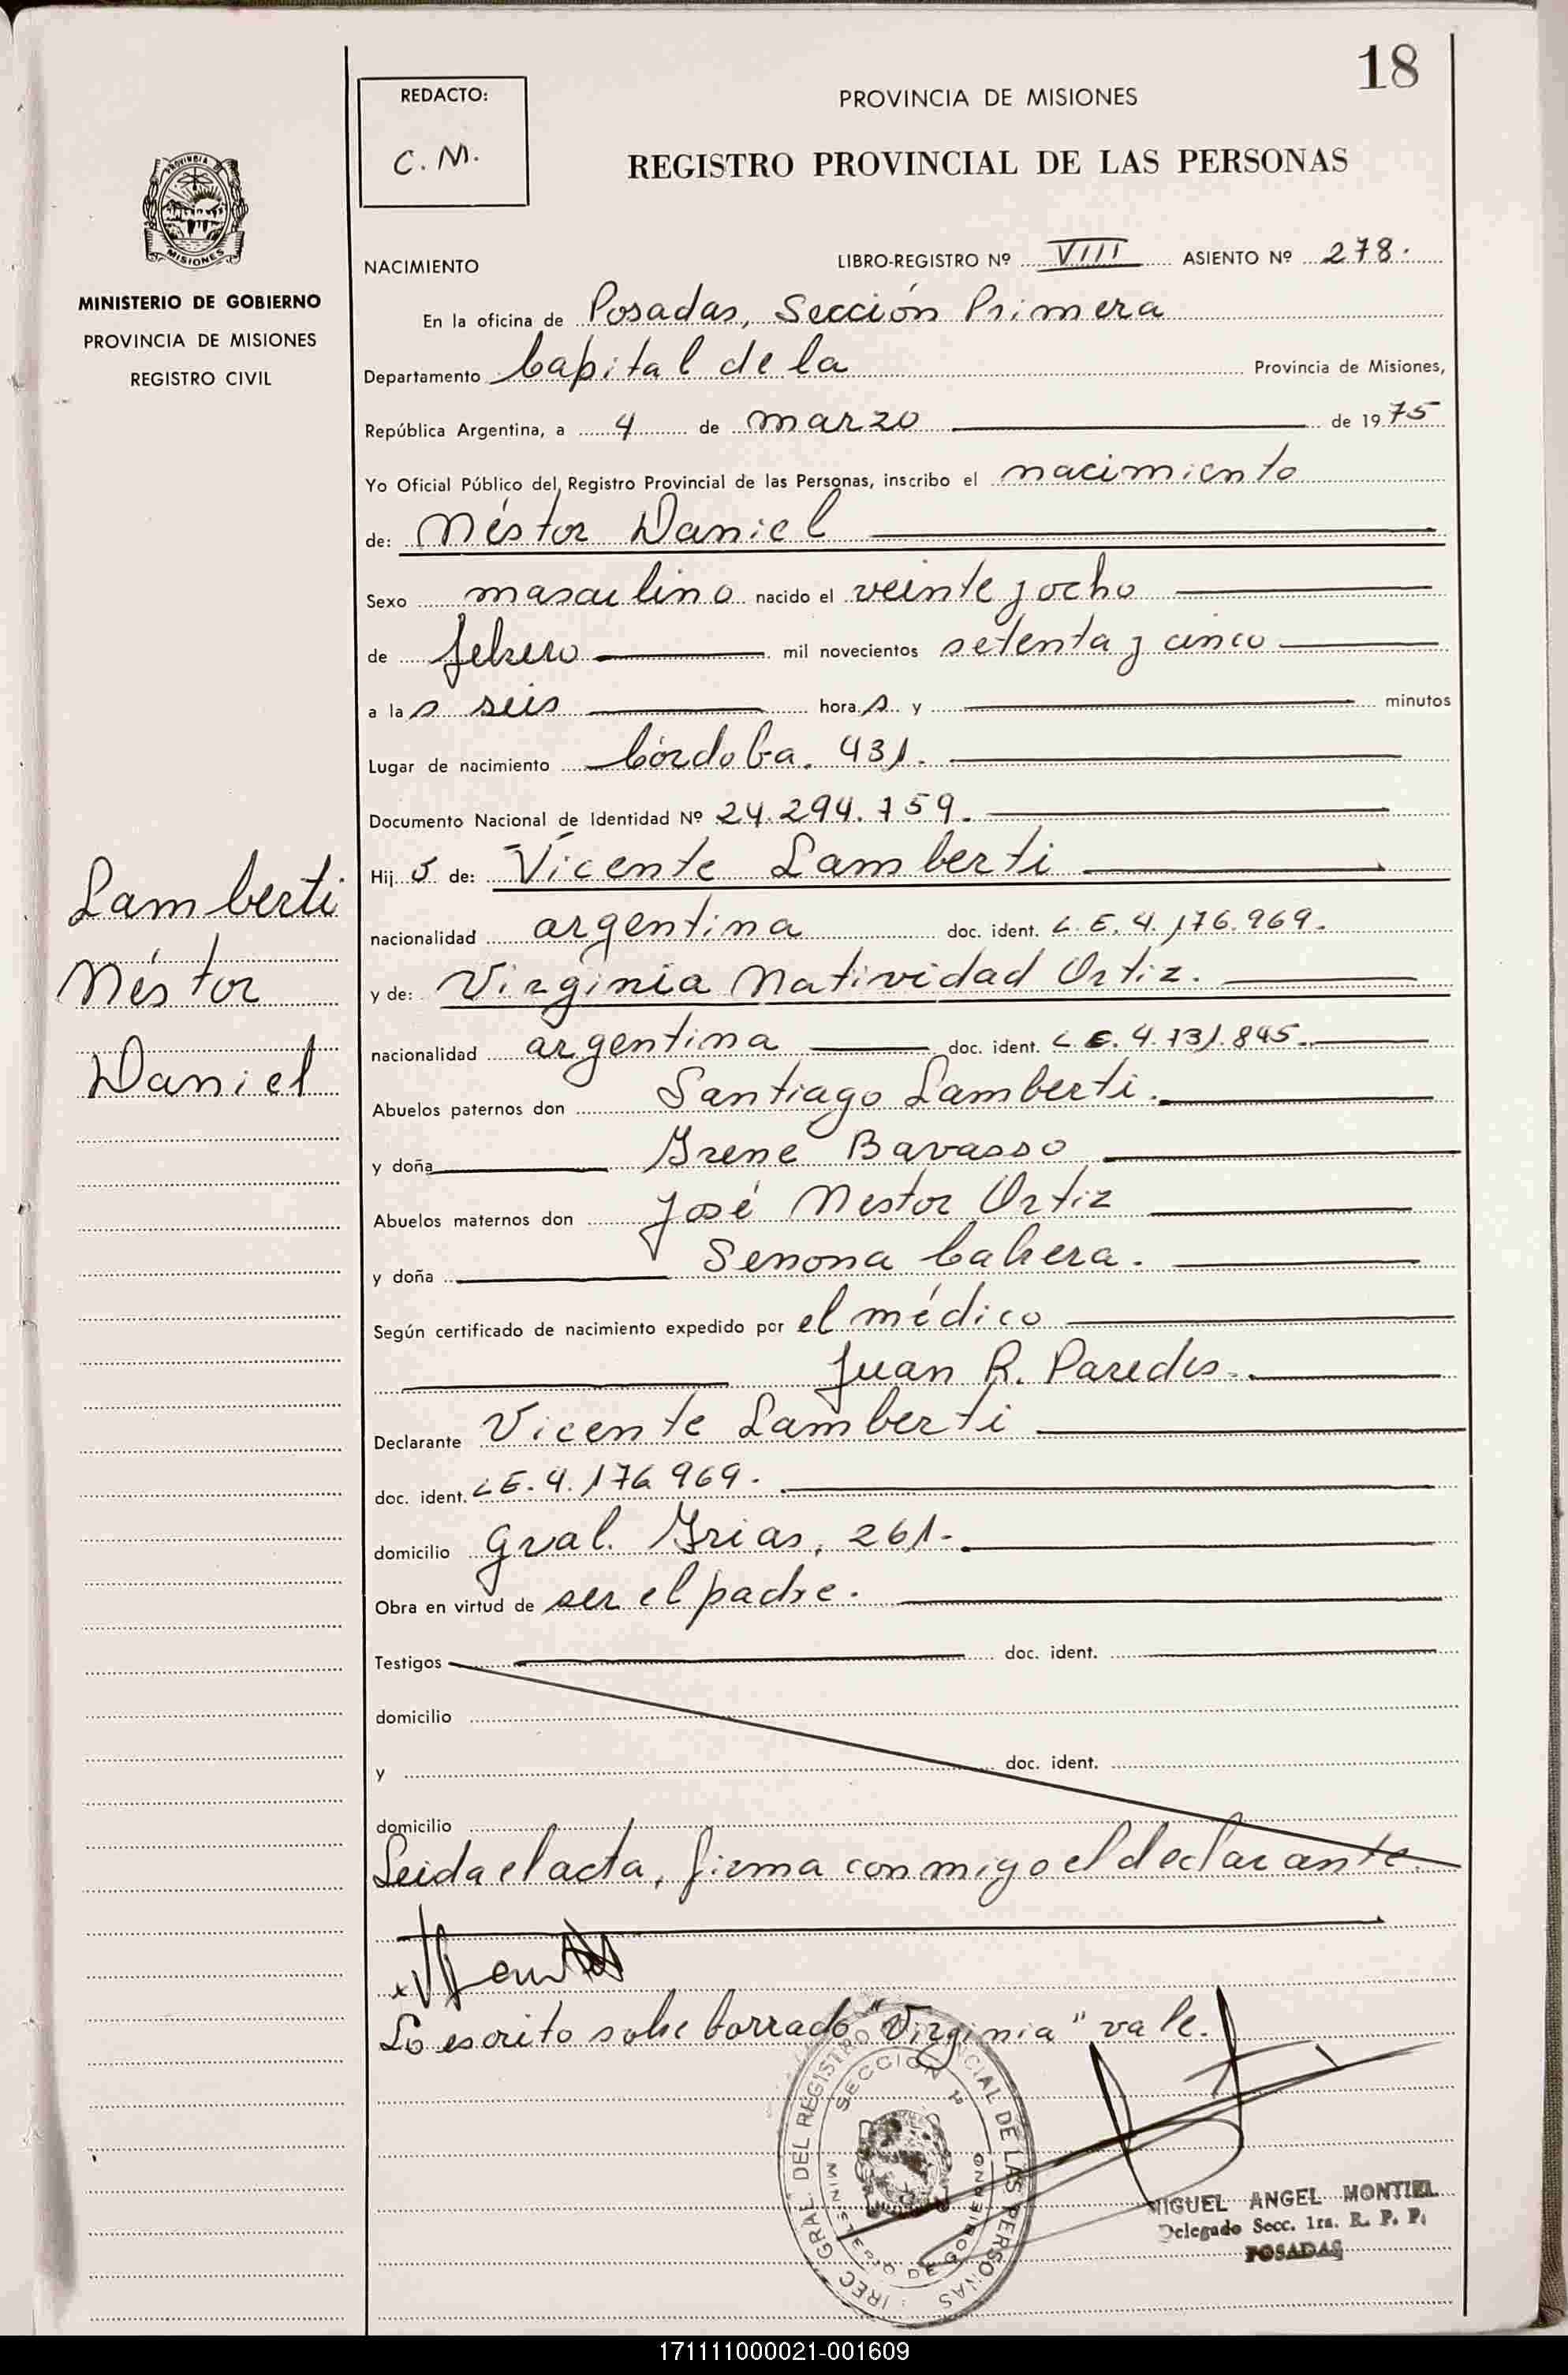 18
REDACTO:
C. M.
PROVINCIA DE MISIONES
REGISTRO PROVINCIAL DE LAS PERSONAS
PROVINCIA
MISIONES
MINISTERIO DE GOBIERNO
PROVINCIA DE MISIONES
REGISTRO CIVIL
NACIMIENTO
LIBRO-REGISTRO Nº VIII ASIENTO Nº 278.
En la oficina de Posadas, Sección Primera
Departamento Capital de la Provincia de Misiones,
República Argentina, a 4 de marzo de 1975
Yo Oficial Público del Registro Provincial de las Personas, inscribo el nacimiento
de: Néstor Daniel
Sexo masculino nacido el veinte y ocho
de febrero mil novecientos setenta y cinco
a las seis horas y minutos
Lugar de nacimiento Córdoba. 431.
Documento Nacional de Identidad Nº 24.294.759.
Hijo de: Vicente Lamberti
nacionalidad argentina doc. ident. L.E. 4.176.969.
y de: Virginia Natividad Ortiz.
nacionalidad argentina doc. ident. L.E. 4.731.845.
Abuelos paternos don Santiago Lamberti.
y doña Irene Bavasso
Abuelos maternos don José Nestor Ortiz
y doña Senona
Según certificado de nacimiento expedido por el médico
Juan R. Paredes.
Declarante Vicente Lamberti
doc. ident. L.E. 4.176.969.
domicilio Gral. Frias, 261.
Obra en virtud de ser el padre.
Testigos doc. ident.
domicilio
y doc. ident.
domicilio
Leida el acta, firma conmigo el declarante.
Lo escrito sobre borrado "Virginia" vale.
Lamberti
Néstor
Daniel
DIREC. GRAL. DEL REGISTRO PROVINCIAL DE LAS PERSONAS
SECCION 1ª
MINISTERIO DE GOBIERNO
MIGUEL ANGEL MONTIEL
Delegado Secc. 1ra. R. P. P.
POSADAS
171111000021-001609